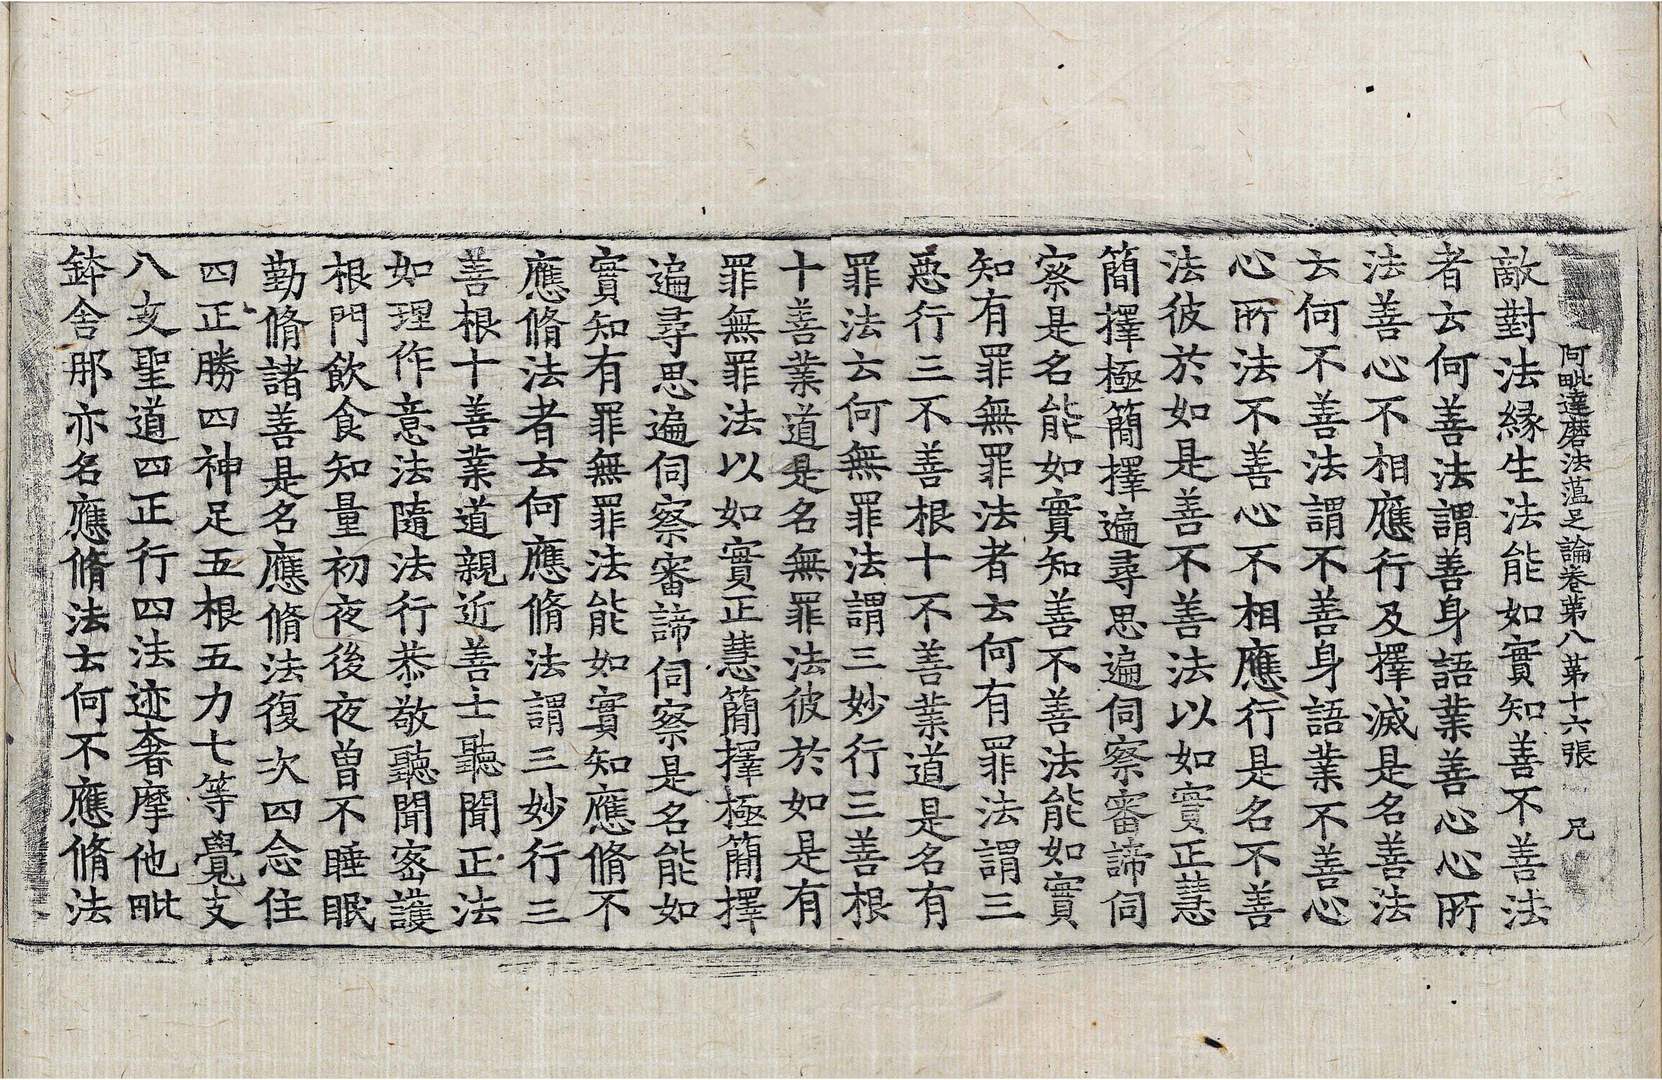 阿毗達磨法蘊足論卷第八 第十六張 兄
敵對法緣生法能如實知善不善法
者云何善法謂善身語業善心心所
法善心不相應行及擇滅是名善法
云何不善法謂不善身語業不善心
心所法不善心不相應行是名不善
法彼於如是善不善法以如實正慧
簡擇極簡擇遍尋思遍伺察審諦伺
察是名能如實知善不善法能如實
知有罪無罪法者云何有罪法謂三
惡行三不善根十不善業道是名有
罪法云何無罪法謂三妙行三善根
十善業道是名無罪法彼於如是有
罪無罪法以如實正慧簡擇極簡擇
遍尋思遍伺察審諦伺察是名能如
實知有罪無罪法能如實知應脩不
應脩法者云何應脩法謂三妙行三
善根十善業道親近善士聽聞正法
如理作意法隨法行恭敬聽聞密護
根門飲食知量初夜後夜曾不睡眠
勤脩諸善是名應脩法復次四念住
四正勝四神足五根五力七等覺支
八支聖道四正行四法迹奢摩他毗
鉢舍那亦名應脩法云何不應脩法